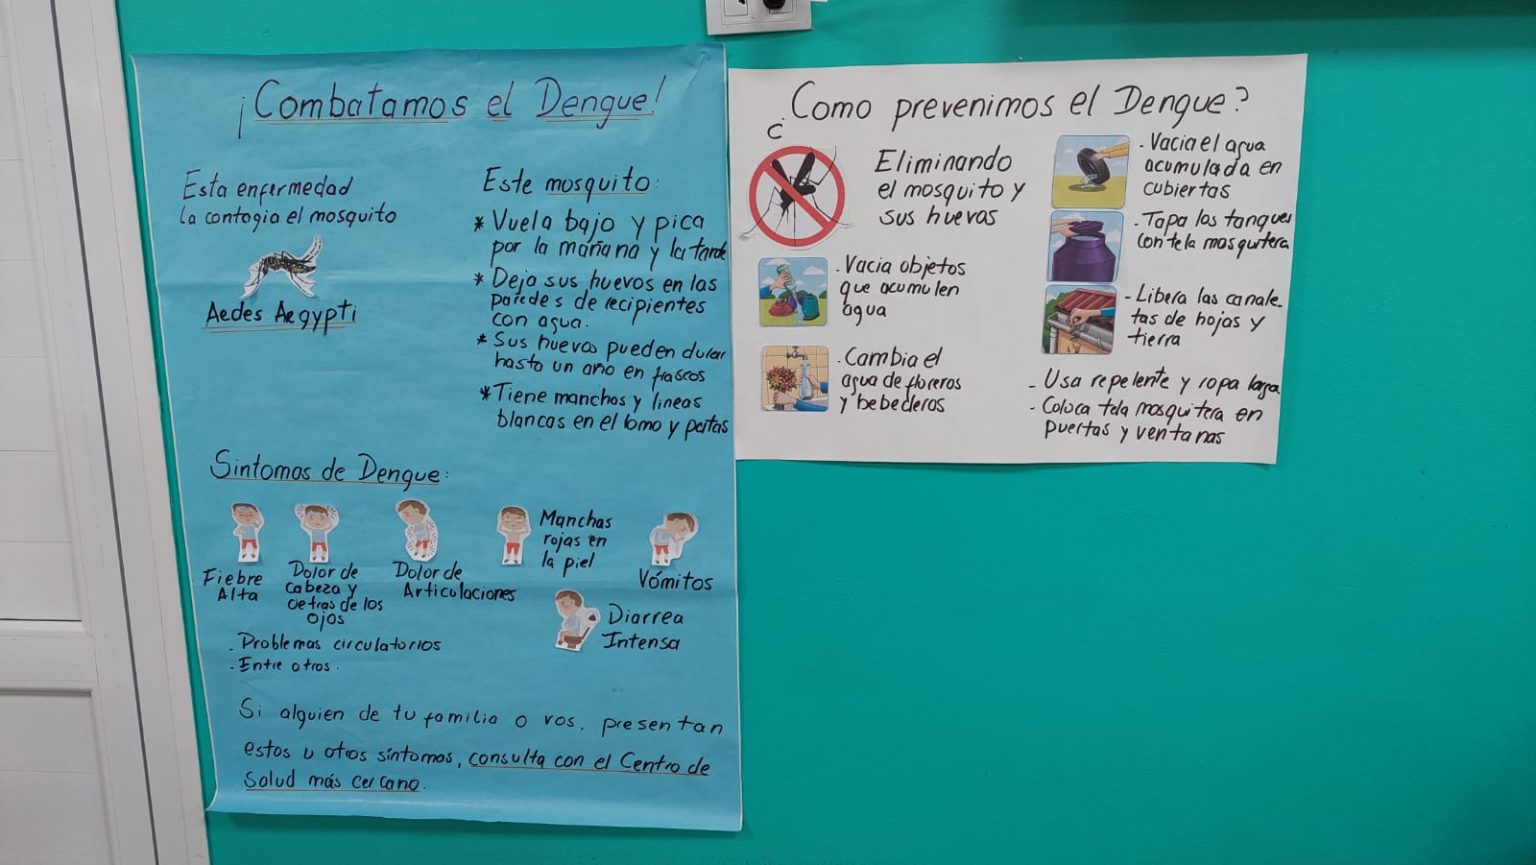 ¡Combatamos el Dengue!
Esta enfermedad
la contagia el mosquito
Aedes Aegypti
Este mosquito:
* Vuela bajo y pica
por la mañana y la tarde
* Deja sus huevos en las
paredes de recipientes
con agua.
* Sus huevos pueden durar
hasta un año en frascos
* Tiene manchas y lineas
blancas en el lomo y patas
Sintomas de Dengue:
Fiebre
Alta
Dolor de
Cabeza y
detras de los
ojos
Dolor de
Articulaciones
Manchas
rojas en
la piel
Vómitos
Diarrea
Intensa
- Problemas circulatorios
- Entre otros.
Si alguien de tu familia o vos, presentan
estos u otros síntomas, consulta con el Centro de
Salud más cercano.
¿Como prevenimos el Dengue?
Eliminando
el mosquito y
sus huevas
- Vacia objetos
que acumulen
agua
- Cambia el
agua de floreros
y bebederos
- Vacia el agua
acumulada en
cubiertas
- Tapa los tanques
con tela mosquitera
- Libera las canale-
tas de hojas y
tierra
- Usa repelente y ropa larga
- Coloca tela mosquitera en
puertas y ventanas